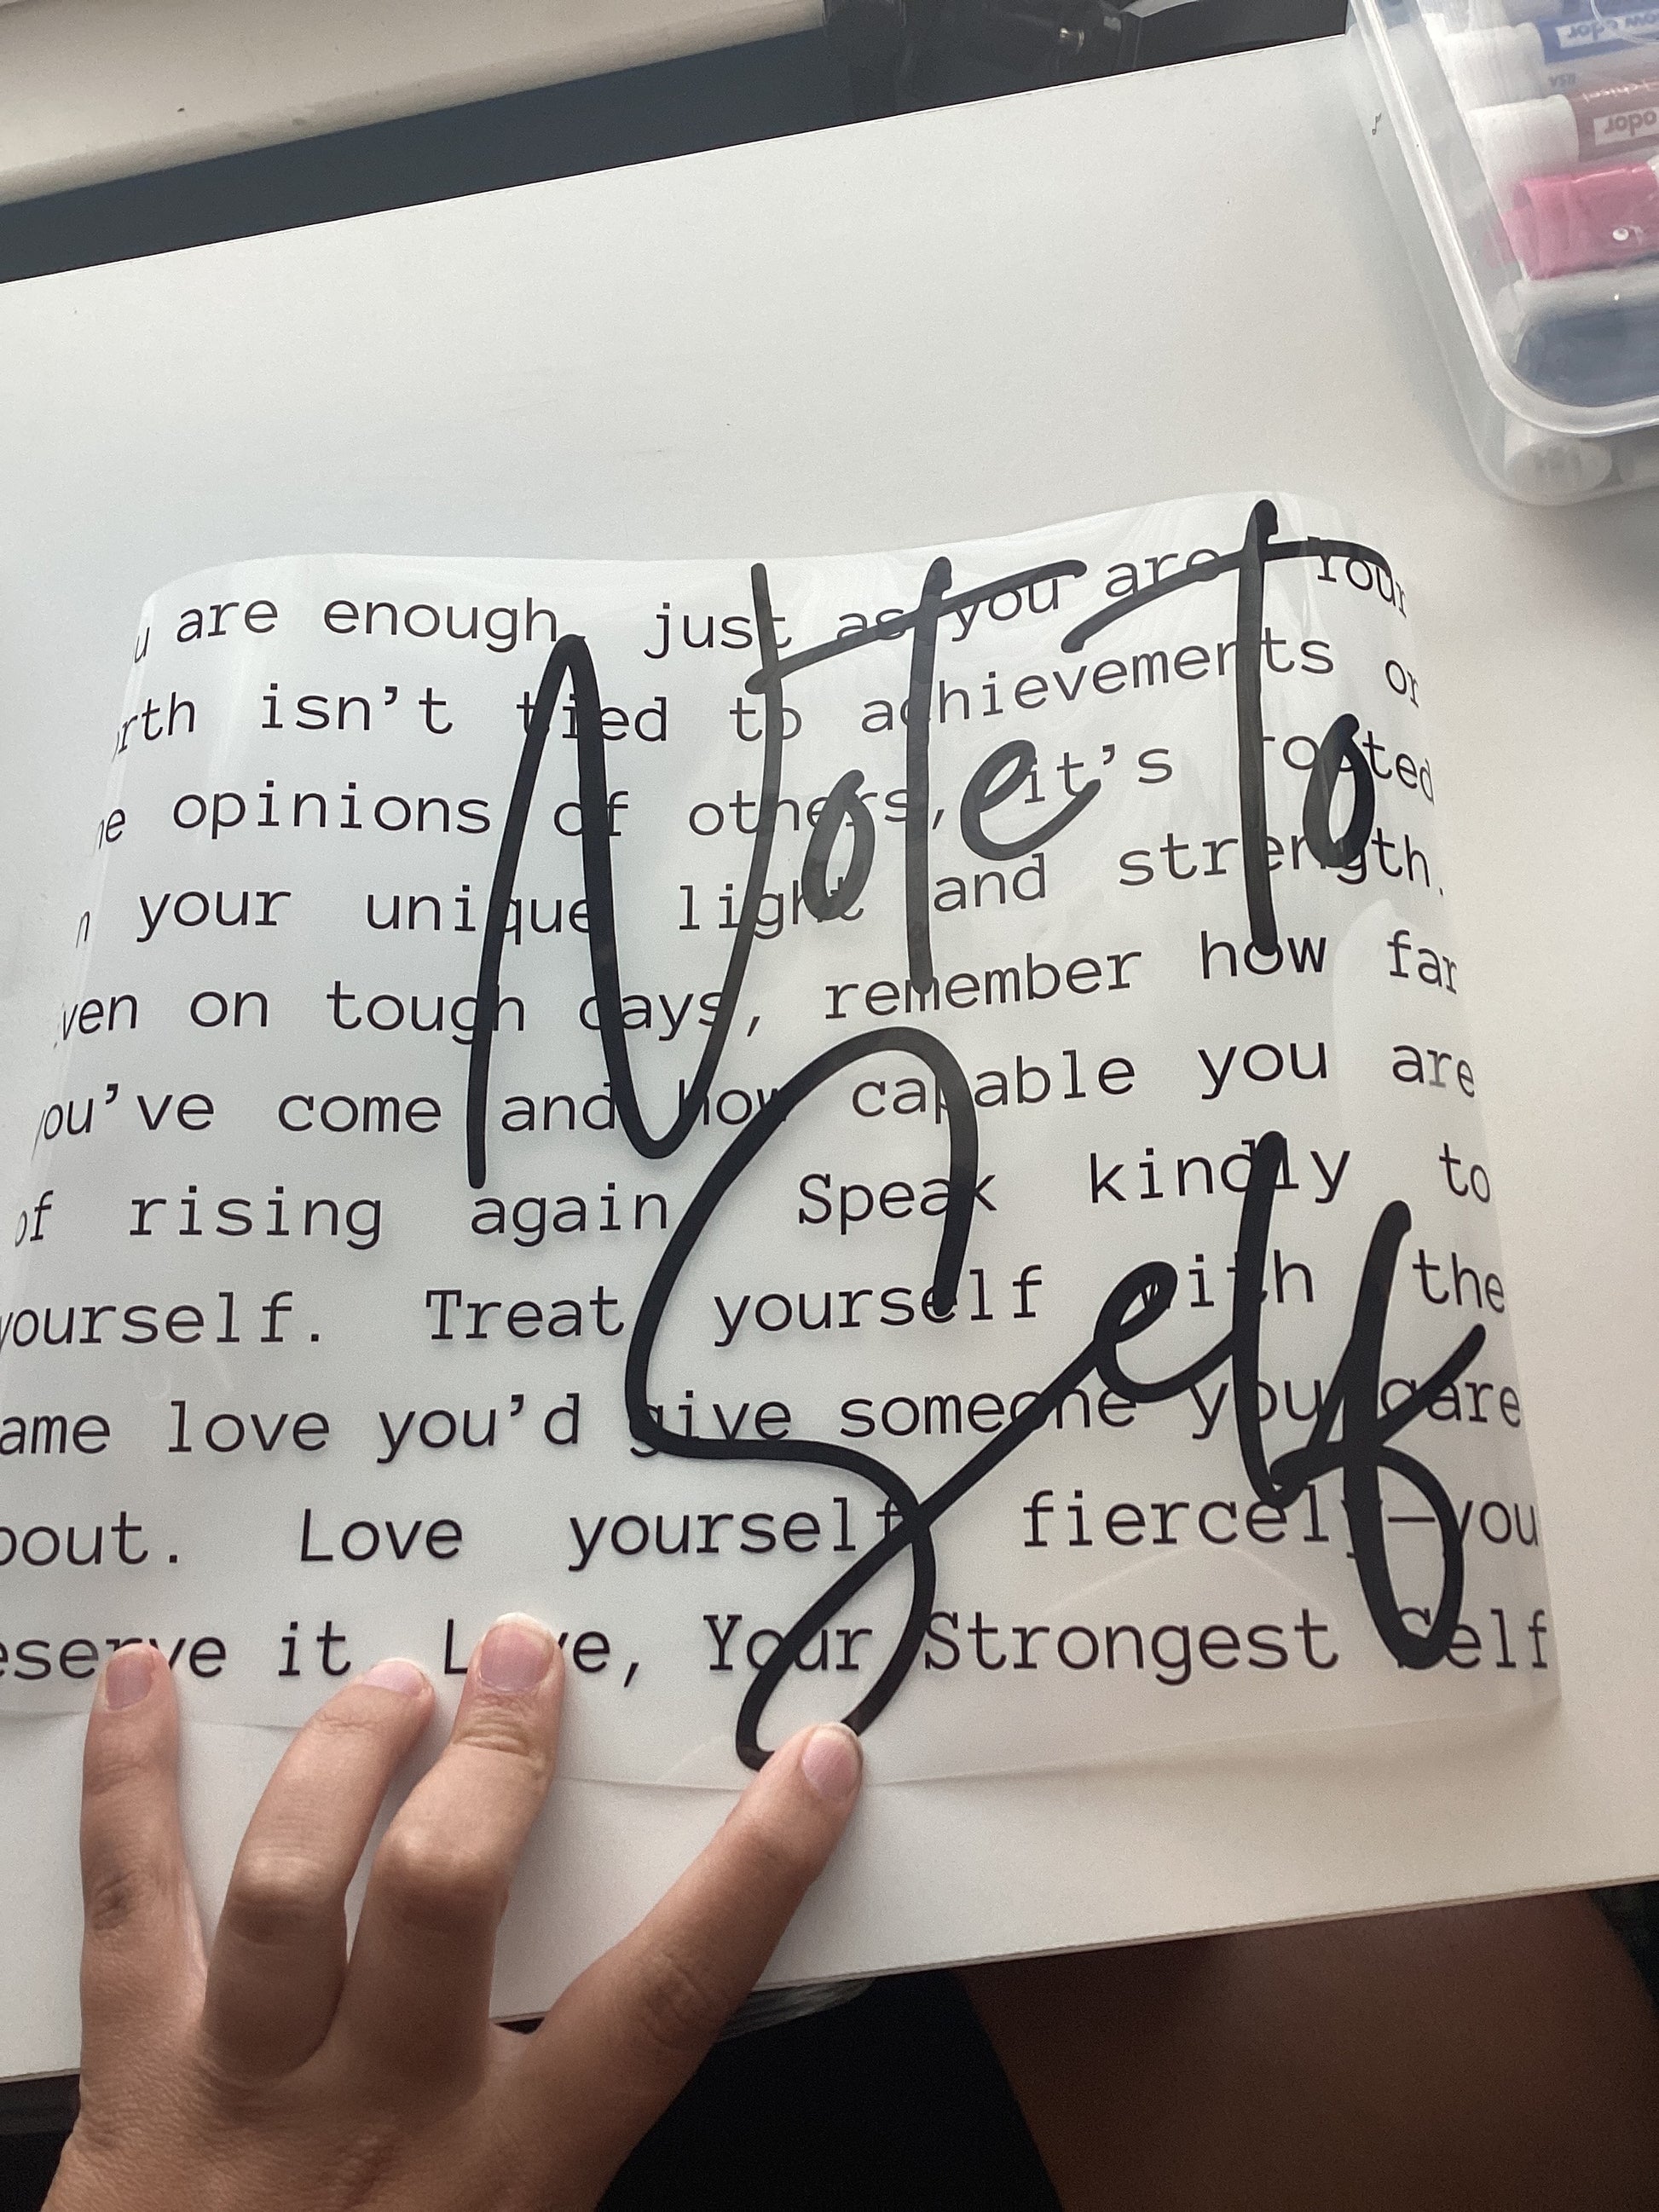 Note To
Self
u are enough, just as you are Your
rth isn’t tied to achievements or
he opinions of others, it’s rooted
n your unique light and strength.
ven on tough days, remember how far
you’ve come and how capable you are
of rising again Speak kindly to
yourself. Treat yourself with the
ame love you’d give someone you care
bout. Love yourself fiercely—you
eserve it Love, Your Strongest Self
low odor
odor